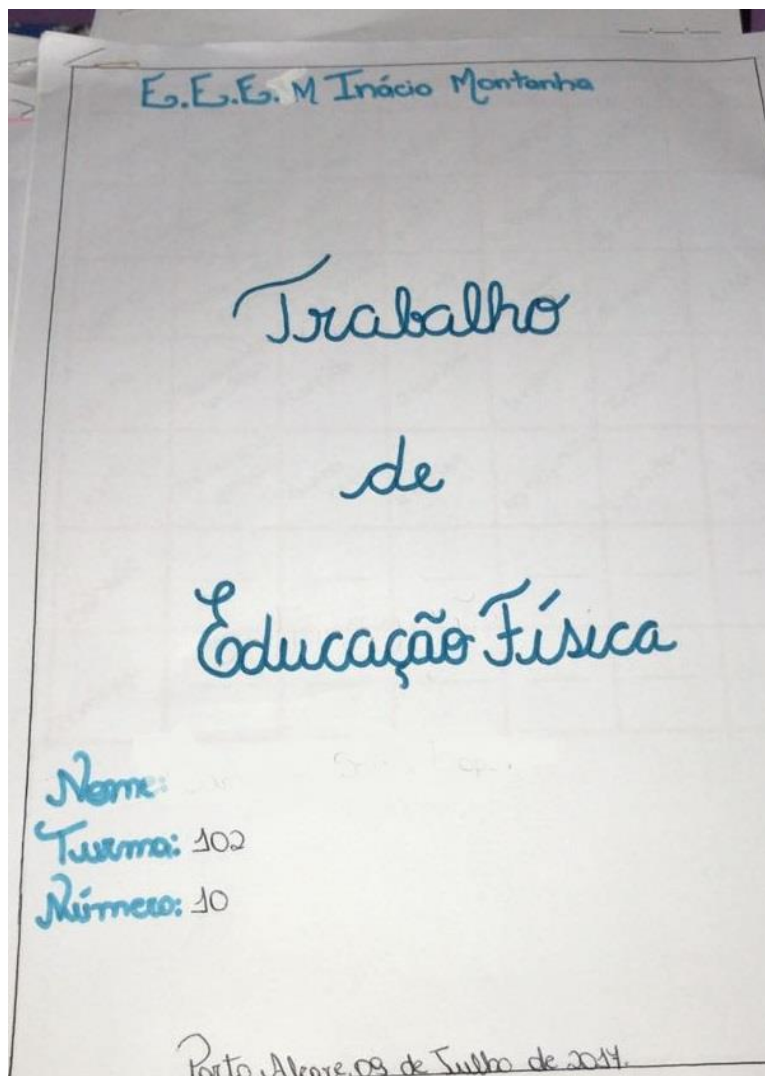 E.E.E. M Inácio Montanha
Trabalho
de
Educação Física
Nome:
Turma: 102
Número: 10
Porto Alegre, 09 de Julho de 2017.